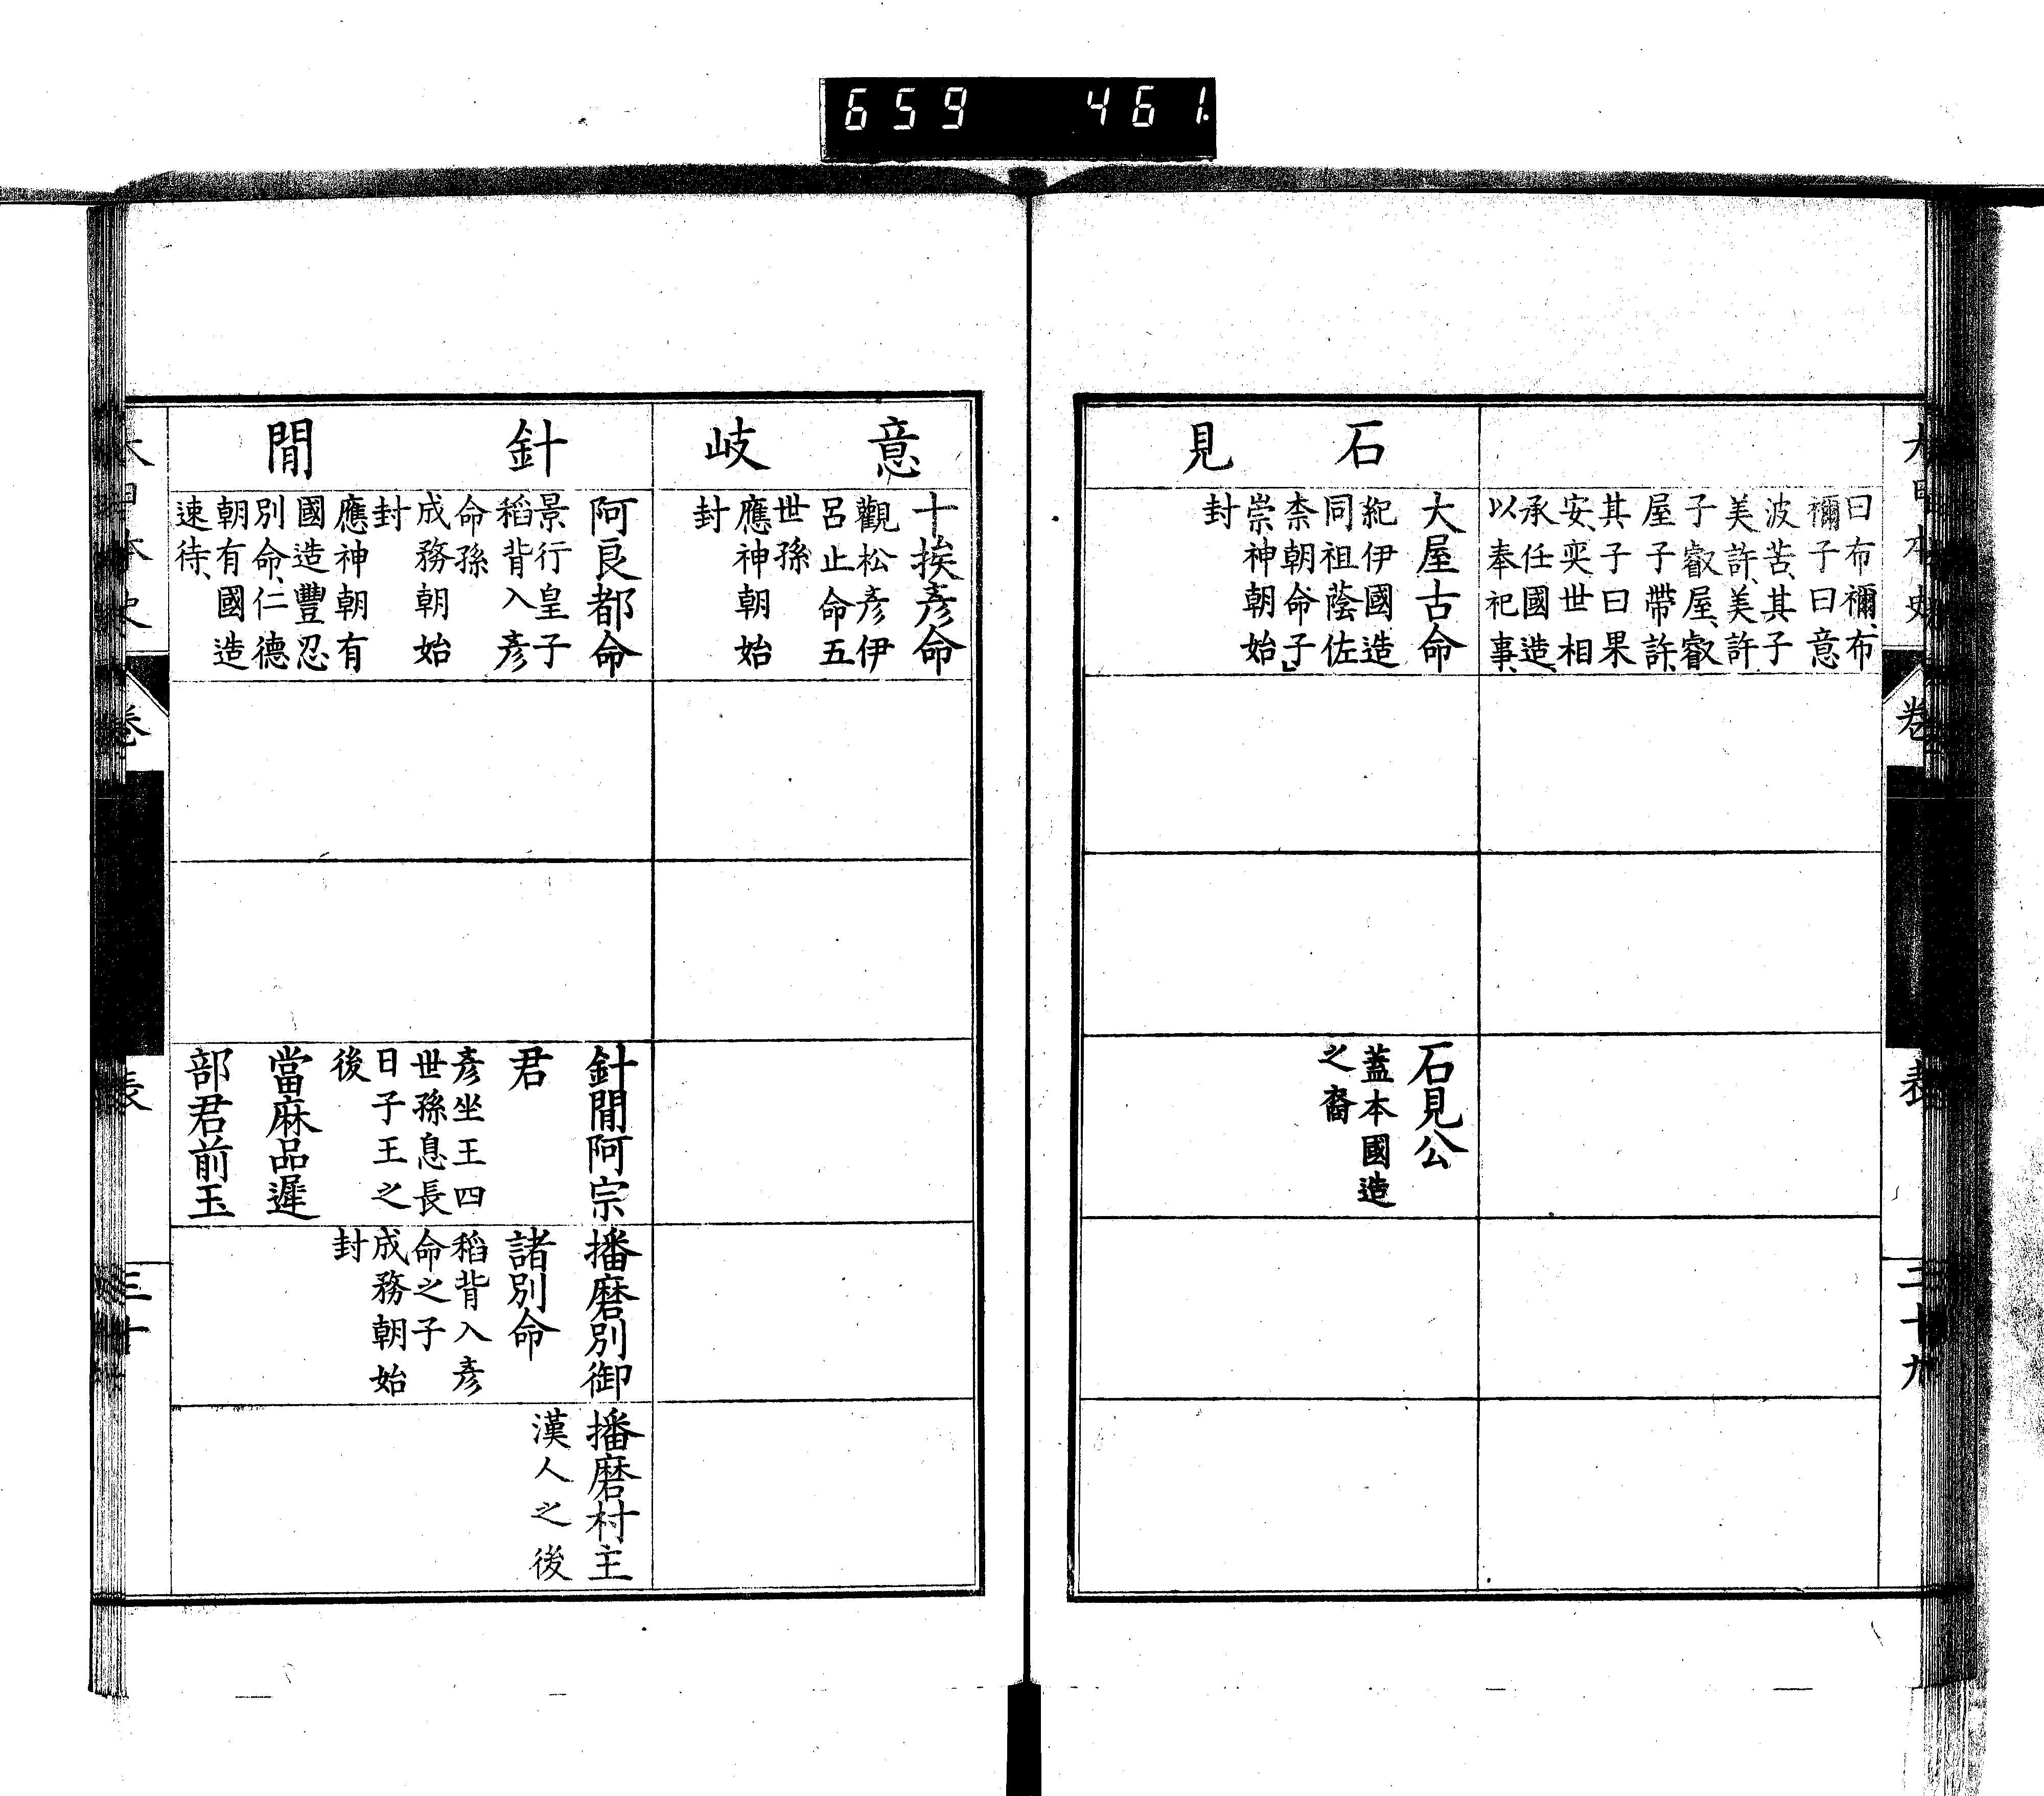 659 461.
曰布禰、布
禰子曰意
波苦、其子
美許、美許
子叡屋、叡
屋子帶許、
其子曰果
安、奕世相
承任國造、
以奉祀事、
石見
大屋古命
紀伊國造
同祖蔭佐
柰朝命子」
崇神朝始
封
石見公
蓋本國造
之裔
三十九
意岐
十挨彥命
觀松彥伊
呂止命五
世孫
應神朝始
封
針間
阿良都命
景行皇子
稻背入彥
命孫
成務朝始
封
應神朝有
國造豐忍
別命、仁德
朝有國造
速待、
針間阿宗
君
彥坐王四
世孫息長
日子王之
後
當麻品遲
部君前玉
播磨別御
諸別命
稻背入彥
命之子
成務朝始
封
播磨村主
漢人之後